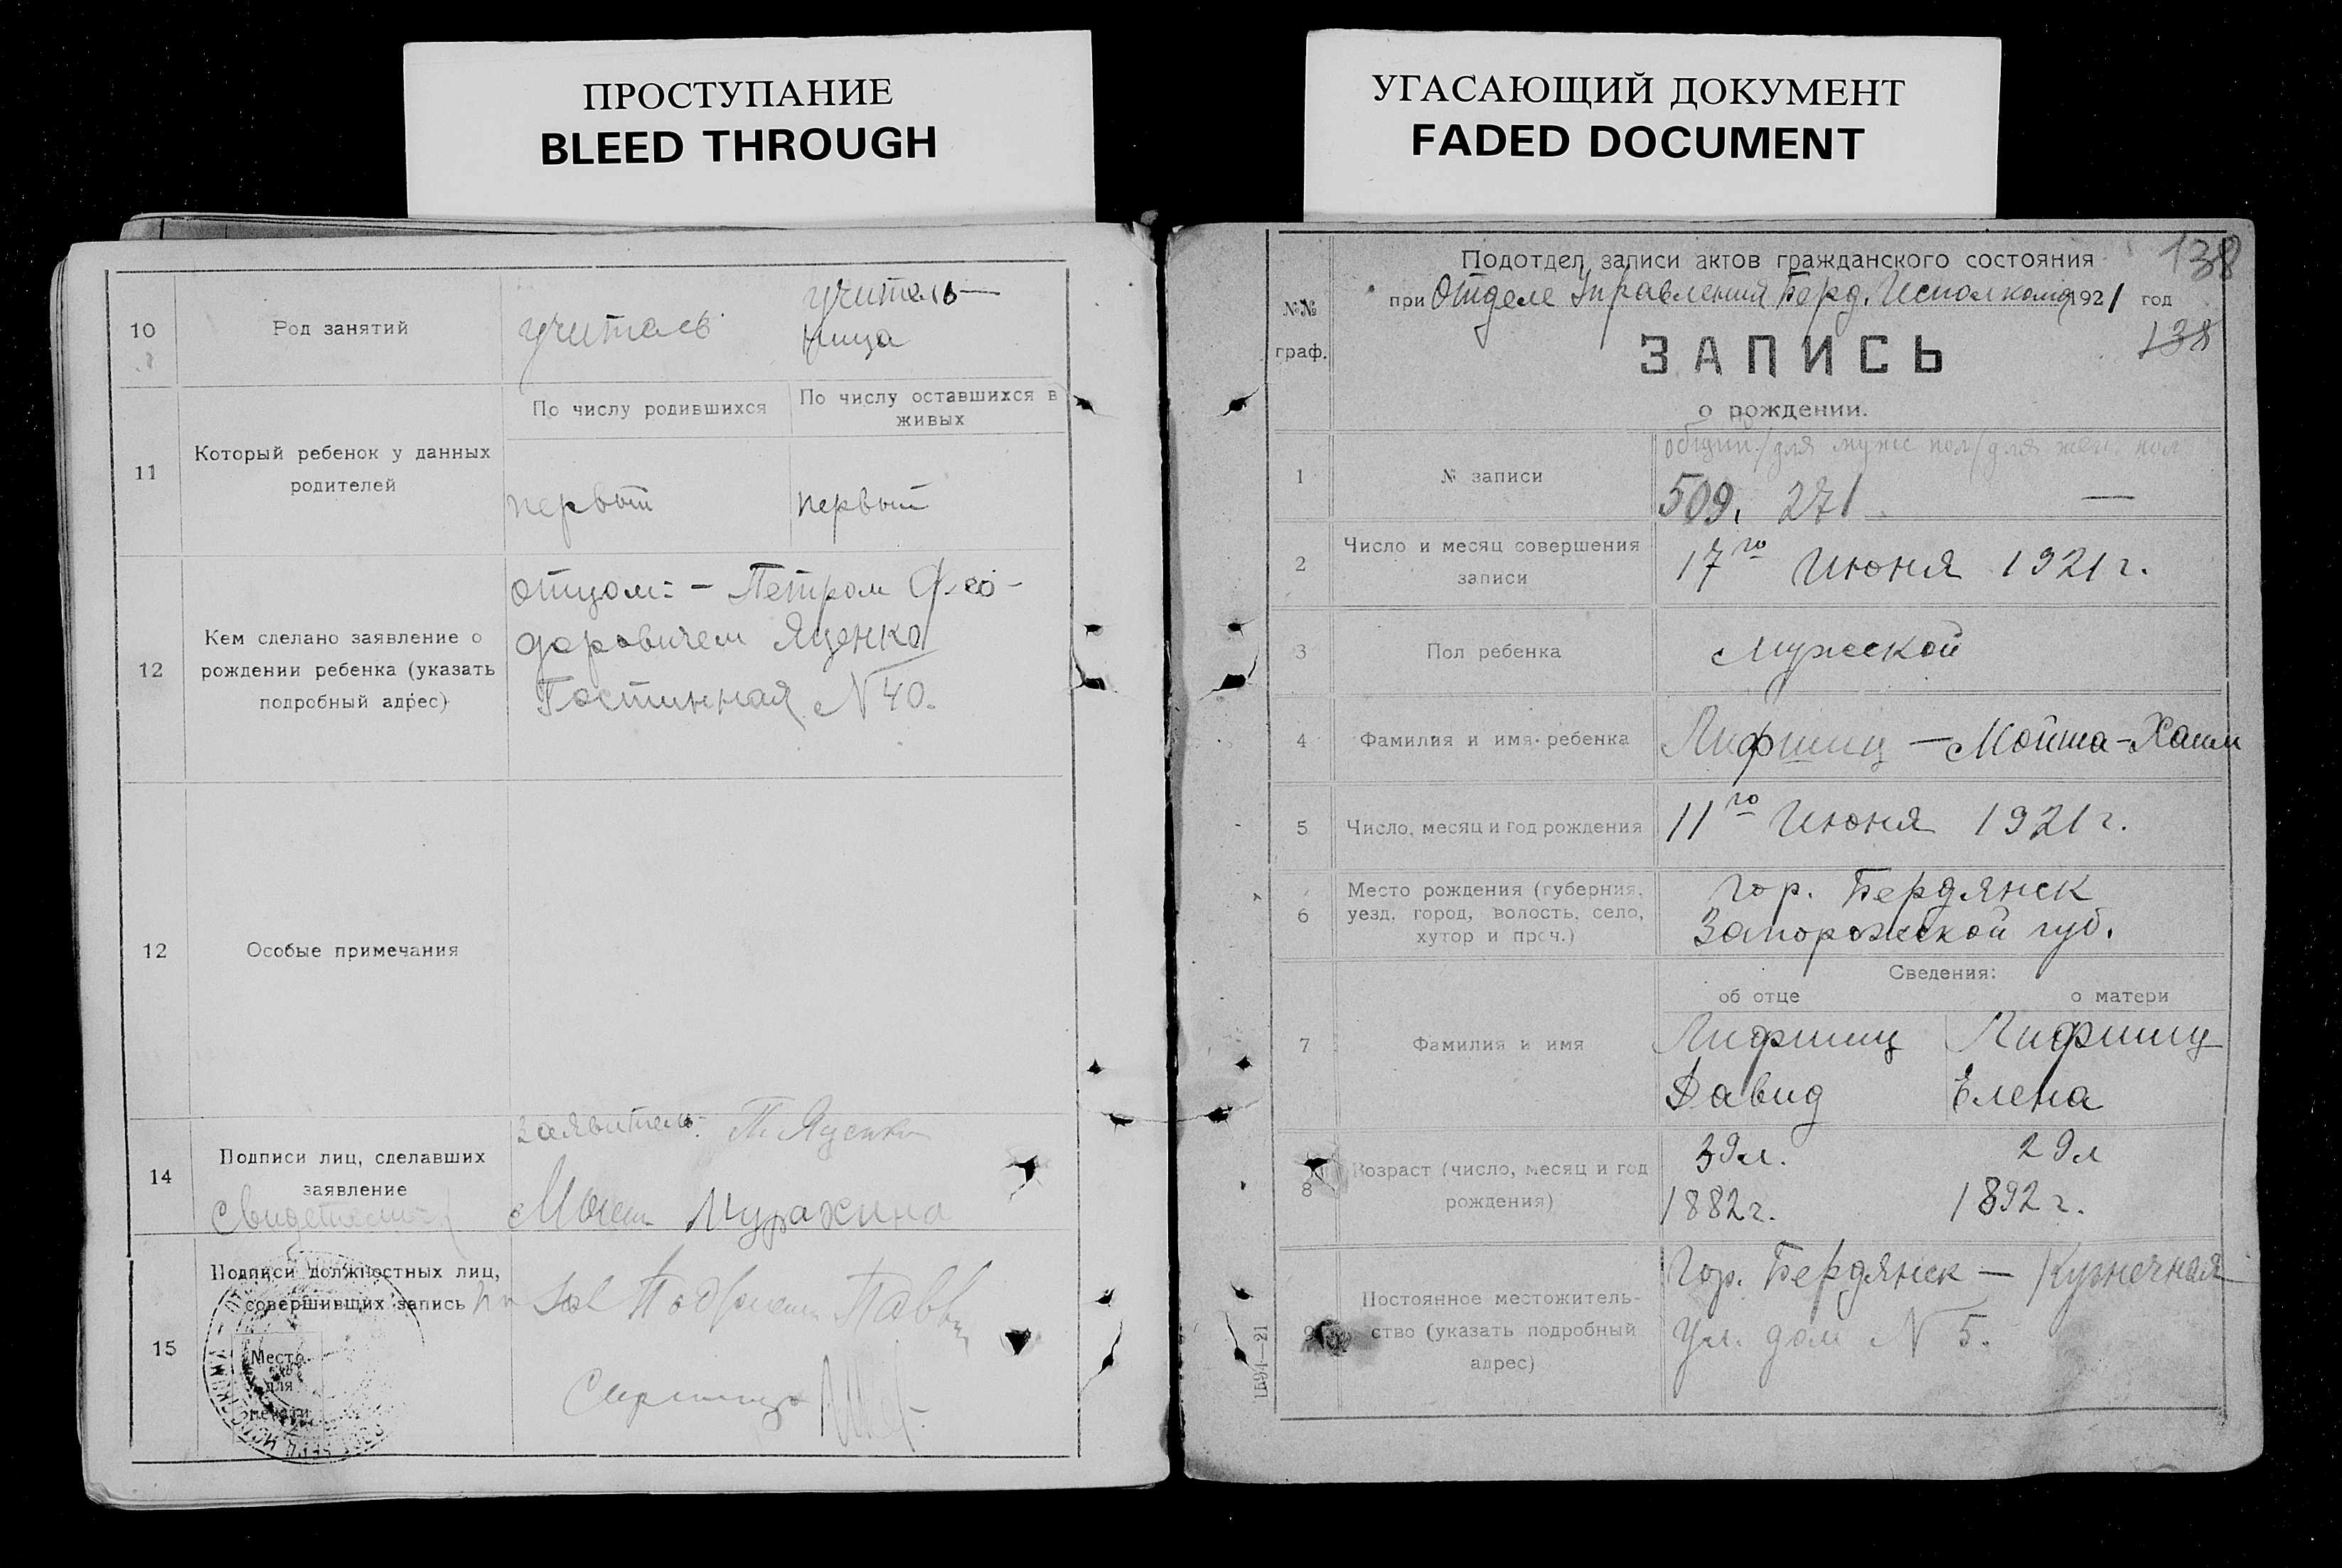 ПРОСТУПАНИЕ
BLEED THROUGH
УГАСАЮЩИЙ ДОКУМЕНТ
FADED DOCUMENT
10
Род занятий
учитель
учитель—
ница
11
Который ребенок у данных
родителей
По числу родившихся
По числу оставшихся в
живых
первый
первый
12
Кем сделано заявление о
рождении ребенка (указать
подробный адрес)
отцом: — Петром Фео-
доровичем Яценко
Гостинная N 40.
12
Особые примечания
14
Подписи лиц, сделавших
заявление
Свидетели
заявитель: П. Яценко
15
Подписи должностных лиц,
совершивших запись
Место
для
печати
138
№№
граф.
Подотдел записи актов гражданского состояния
при Отделе Управления Берд. Исполкома 1921 год
138
ЗАПИСЬ
о рождении.
1
№ записи
общий/для муж пол/для жен. пол
509. 271 —
2
Число и месяц совершения
записи
17го Июня 1921 г.
3
Пол ребенка
мужской
4
Фамилия и имя ребенка
Лифшиц — Мойша-Хаим
5
Число, месяц и год рождения
11го Июня 1921 г.
6
Место рождения (губерния,
уезд, город, волость, село,
хутор и проч.)
гор. Бердянск
Запорожской губ.
Сведения:
об отце
о матери
7
Фамилия и имя
Лифшиц
Давид
Лифшиц
Елена
8
Возраст (число, месяц и год
рождения)
39 л.
1882 г.
29 л
1892 г.
9
Постоянное местожитель-
ство (указать подробный
адрес)
Гор. Бердянск — Кузнечная
ул. дом N 5.
1594—21